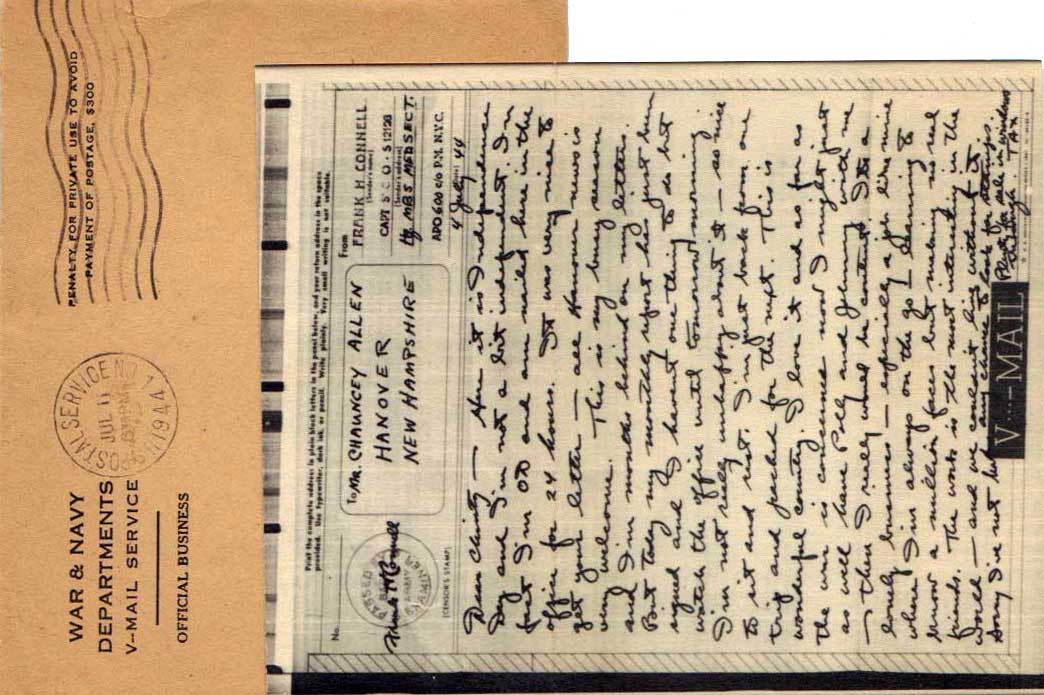 PENALTY FOR PRIVATE USE TO AVOID
PAYMENT OF POSTAGE, $300
POSTAL SERVICE NO. 
JUL 11
1944
WAR & NAVY
DEPARTMENTS
V-MAIL SERVICE
OFFICIAL BUSINESS
Print the complete address in plain block letters in the panel below, and your return address in the space
provided. Use typewriter, dark ink, or pencil. Write plainly. Very small writing is not suitable.
No.
From
To MR. CHAUNCEY ALLEN
HANOVER
NEW HAMPSHIRE
FRANK H. CONNELL
(Sender's name)
CAPT SN C O-512128
(Sender's address)
Hq. MBS MED SECT.
APO 600 c/o P.M. N.Y.C.
4 July 44
PASSED BY
ARMY EXAMINER
Frank H Connell
(CENSOR'S STAMP)
Dear Chinty — Here it is Independence
Day and I'm not a bit independent. In
fact I'm OD and am nailed here in the
office for 24 hours. It was very nice to
get your letter — all Hanover news is
very welcome. This is my busy season
and I'm months behind on my letters.
But today my monthly report has just been
signed and I havent one thing to do but
watch the office until tomorrow morning
I'm not really unhappy about it — so nice
to sit and rest. I'm just back from one
trip and packed for the next. This is
wonderful country. I love it and as far as
the war is concerned now I might just
as well have Polly and Johnny with me
— then I really would be content. Its a
lonely business — especially a job like mine
where I'm always on the go — learning to
know a million faces but making no real
friends. The work is the most interesting in the
world — and we couldn't live without it
Sorry I've not had any chance to look for stamps.
Plenty for sale in windows
tho. 
V···—MAIL